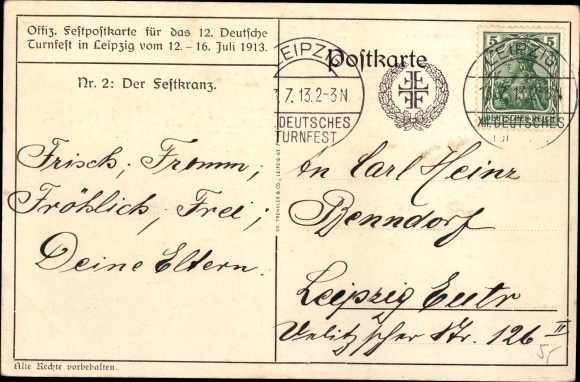 Offiz. Festpostkarte für das 12. Deutsche
Turnfest in Leipzig vom 12.–16. Juli 1913.
Nr. 2: Der Festkranz.
Postkarte
LEIPZIG
7.13.2-3N
DEUTSCHES
TURNFEST
5 5
DEUTSCHES REICH
LEIPZIG
7.13.
XII. DEUTSCHES
Frisch, Fromm,
Fröhlich, Frei;
Deine Eltern.
An Carl Heinz
Benndorf
Leipzig Eutr
Str. 126 II
Alle Rechte vorbehalten.